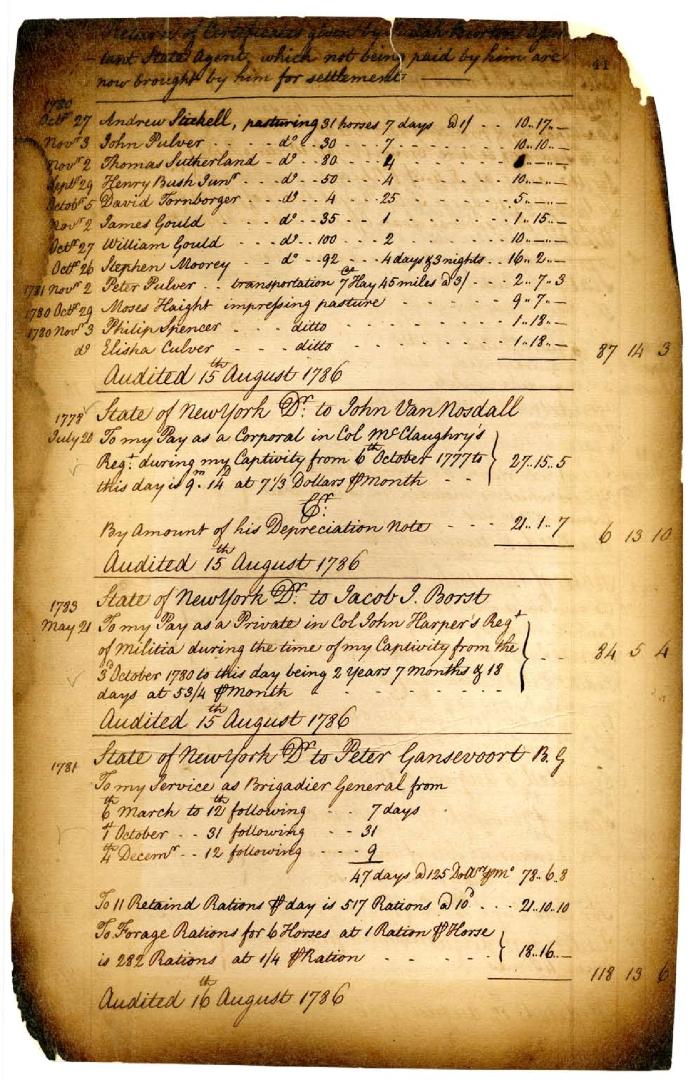 Return of Certificates given by
tant State Agent, which not being paid by him are
now brought by him for settlement —
41
1780
Octr 27 Andrew Stickell, pasturing 31 horses 7 days @ 1/ - - 10..17..—
Novr 3 John Pulver - - - do - 30 - - 7 - - - 10..10..—
Novr 2 Thomas Sutherland - do - 80 - - 4 - - -
Septr 29 Henry Bush Junr - - do - 50 - - 4 - - - 10..—..—
Octob 5 David Tornborger - do - 4 - - 25 - - - 5..—..—
Novr 2 James Gould - - do - 35 - - 1 - - - 1..15..—
Octr 27 William Gould - - do - 100 - - 2 - - - 10..—..—
Octr 26 Stephen Moorey - do - 92 - - 4 days & 3 nights - - 16..2..—
1781 Novr 2 Peter Pulver - - transportation 7 Ct Hay 45 miles @ 3/ - - 2..7..3
1780 Octr 29 Moses Haight impressing pasture - - - 9..7..—
1780 Novr 3 Philip Spencer - - ditto - - - 1..18..—
do Elisha Culver - - ditto - - - 1..18..—
87 14 3
Audited 15th August 1786
State of New York Dr. to John Van Nosdall
1778
July 20 To my Pay as a Corporal in Col McClaughry's
Regt. during my Captivity from 6th October 1777 to
this day is 9m. 14D at 7 1/3 Dollars ⅌ month - - 27..15..5
Cr.
By Amount of his Depreciation Note - - - 21..1..7
6 13 10
Audited 15th August 1786
State of New York Dr. to Jacob J. Borst
1783
May 21 To my Pay as a Private in Col John Harper's Regt
of Militia during the time of my Captivity from the
3d October 1780 to this day being 2 Years 7 months & 18
days at 53/4 ⅌ month - - - 84 5 4
Audited 15th August 1786
State of New York Dr to Peter Gansevoort B. G
1781
To my Service as Brigadier General from
6th March to 12th following - - 7 days
1t October - - 31 following - - 31
4th Decemr - - 12 following - - 9
47 days @ 125 Dollrs ⅌ mo 78..6..8
To 11 Retaind Rations ⅌ day is 517 Rations @ 10d - - 21..10..10
To Forage Rations for 6 Horses at 1 Ration ⅌ Horse
is 282 Rations at 1/4 ⅌ Ration - - - 18..16..—
118 13 6
Audited 16th August 1786